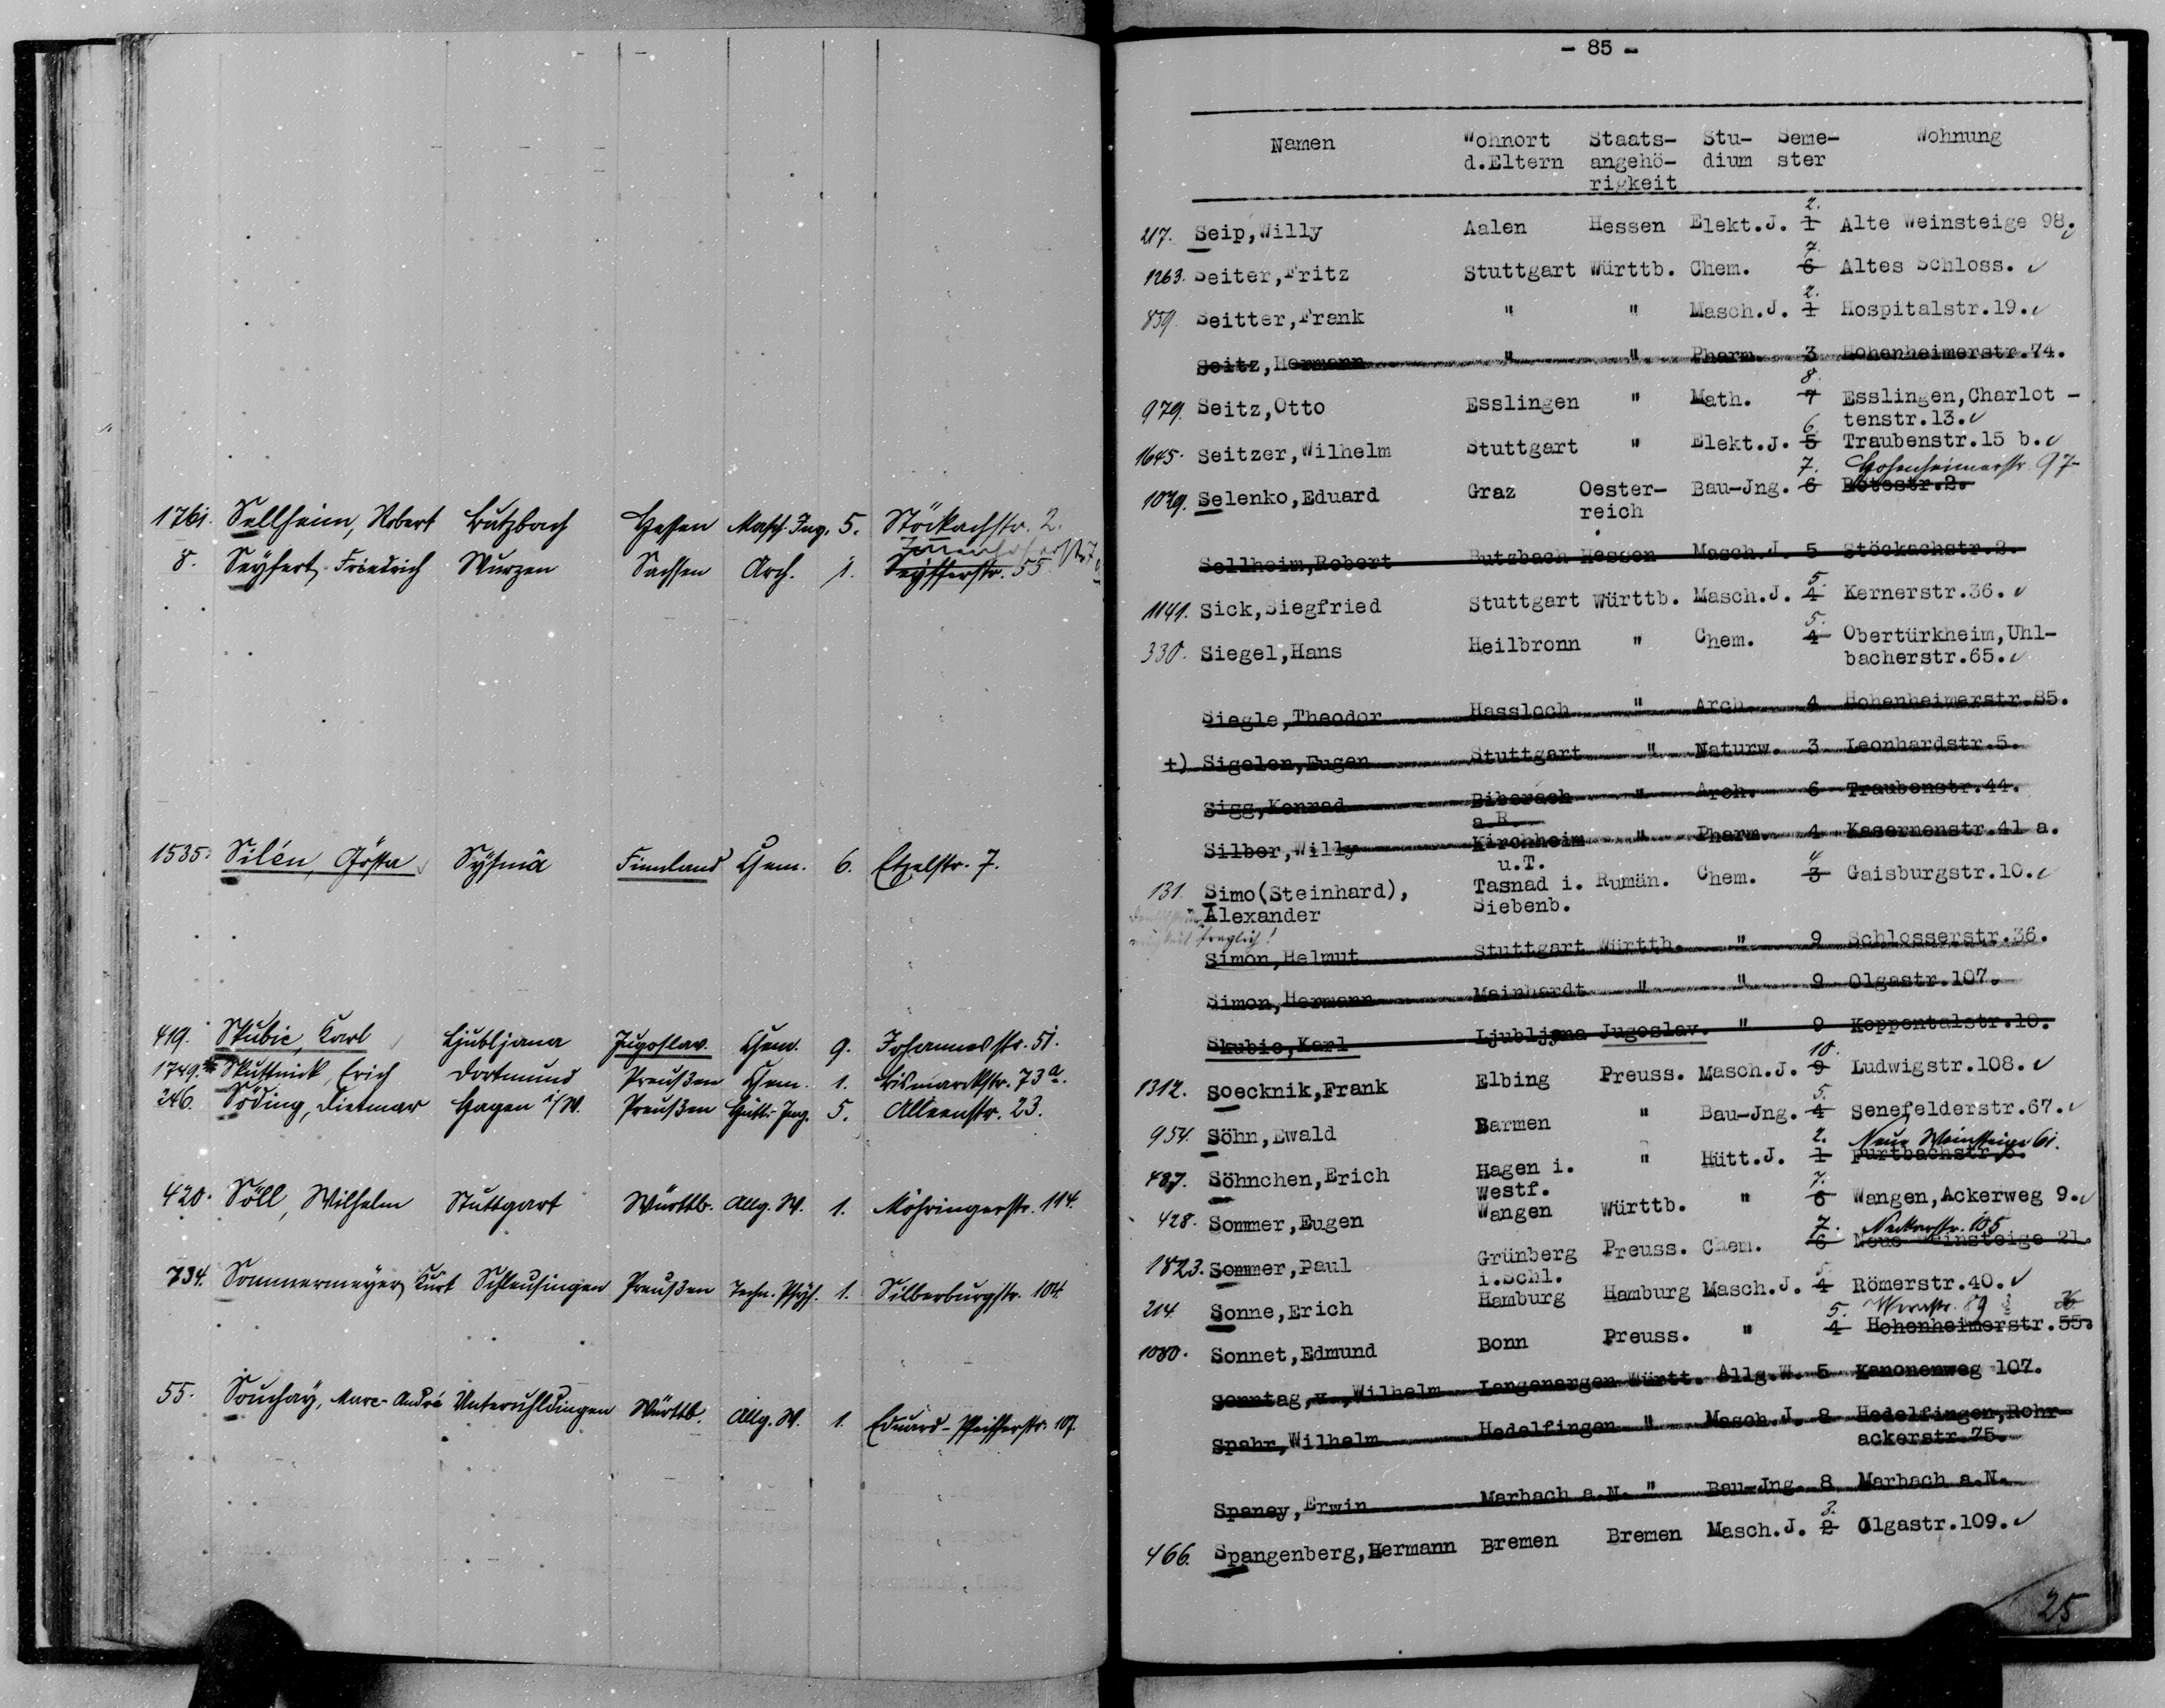 1761. Sellheim, Robert Butzbach Hessen Masch. Ing. 5. Stöckachstr. 2.
8. Seyfert, Friedrich Wurzen Sachsen Arch. 1. Seyfferstr. 55
1535. Silén, Gösta Sysmä Finnland Chem. 6. Etzelstr. 7.
419. Skubic, Karl Ljubljana Jugoslav. Chem. 9. Johannesstr. 51.
1749. Skuttnick, Erich Dortmund Preußen Chem. 1. Bismarckstr. 73a.
246. Söding, Dietmar Hagen i/W. Preußen Hütt.-Ing. 5. Alleenstr. 23.
420. Söll, Wilhelm Stuttgart Württb. Allg. W. 1. Möhringerstr. 114.
734. Sommermeyer, Kurt Schleusingen Preußen Techn. Phys. 1. Silberburgstr. 104.
55. Souchay, Marc-André Unteruhldingen Württb. Allg. W. 1. Eduard-Pfeifferstr. 107.
- 85 -
Namen Wohnort Staats- Stu- Seme- Wohnung
d.Eltern angehö- dium ster
rigkeit
2.
217. Seip,Willy Aalen Hessen Elekt.J. 1 Alte Weinsteige 98.
7.
1263. Seiter,Fritz Stuttgart Württb. Chem. 6 Altes Schloss.
2.
859. Seitter,Frank " " Masch.J. 1 Hospitalstr.19.
Seitz,Hermann " " Pharm. 3 Hohenheimerstr.74.
8.
979. Seitz,Otto Esslingen " Math. 7 Esslingen,Charlot -
tenstr.13.
6.
1645. Seitzer,Wilhelm Stuttgart " Elekt.J. 5 Traubenstr.15 b.
7. Hohenheimerstr. 97
1029. Selenko,Eduard Graz Oester- Bau-Jng. 6 Rotestr.2.
reich
Sellheim,Robert Butzbach Hessen Masch.J. 5 Stöckachstr.2.
5.
1141. Sick,Siegfried Stuttgart Württb. Masch.J. 4 Kernerstr.36.
5.
330. Siegel,Hans Heilbronn " Chem. 4 Obertürkheim,Uhl-
bacherstr.65.
Siegle,Theodor Hassloch " Arch. 4 Hohenheimerstr.85.
+) Sigelen,Eugen Stuttgart " Naturw. 3 Leonhardstr.5.
Sigg,Konrad Biberach " Arch. 6 Traubenstr.44.
a.R.
Silber,Willy Kirchheim " Pharm. 4 Kasernenstr.41 a.
u.T.
4
131. Simo(Steinhard), Tasnad i. Rumän. Chem. 3 Gaisburgstr.10.
Alexander Siebenb.
fraglich!
Simon,Helmut Stuttgart Württb. " 9 Schlosserstr.36.
Simon,Hermann Mainhardt " " 9 Olgastr.107.
Skubic,Karl Ljubljana Jugoslav. " 9 Koppentalstr.10.
10.
1312. Soecknik,Frank Elbing Preuss. Masch.J. 9 Ludwigstr.108.
5.
954. Söhn,Ewald Barmen " Bau-Jng. 4 Senefelderstr.67.
2. Neue Weinsteige 61.
487. Söhnchen,Erich Hagen i. " Hütt.J. 1 Furtbachstr.6.
Westf.
7.
428. Sommer,Eugen Wangen Württb. " 6 Wangen,Ackerweg 9.
7. Neckarstr. 105
1823. Sommer,Paul Grünberg Preuss. Chem. 6 Neue Weinsteige 21.
i.Schl.
5.
214. Sonne,Erich Hamburg Hamburg Masch.J. 4 Römerstr.40.
5.
1080. Sonnet,Edmund Bonn Preuss. " 4 Hohenheimerstr.55.
Sonntag,v.,Wilhelm Langenargen Württ. Allg.W. 5 Kanonenweg 107.
Spahr,Wilhelm Hedelfingen " Masch.J. 8 Hedelfingen,Rohr-
ackerstr.75.
Spaney,Erwin Marbach a.N. " Bau-Jng. 8 Marbach a.N.
3.
466. Spangenberg,Hermann Bremen Bremen Masch.J. 2 Olgastr.109.
25